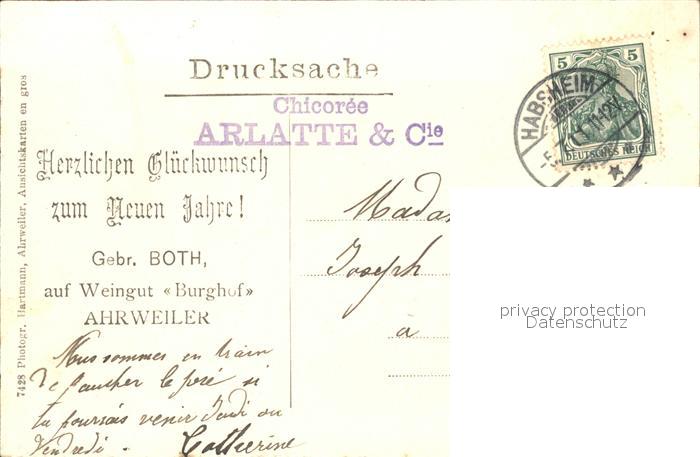 Drucksache
Chicorée
ARLATTE & Cie
Herzlichen Glückwunsch
zum Neuen Jahre!
Gebr. BOTH,
auf Weingut «Burghof»
AHRWEILER
7428 Photogr. Hartmann, Ahrweiler, Ansichtskarten en gros
Nous sommes en train
de faucher le pré si
tu pourrais venir Jeudi ou
Vendredi.
Catherine
5 5
HABSHEIM
DEUTSCHES REICH
Joseph
a
privacy protection
Datenschutz